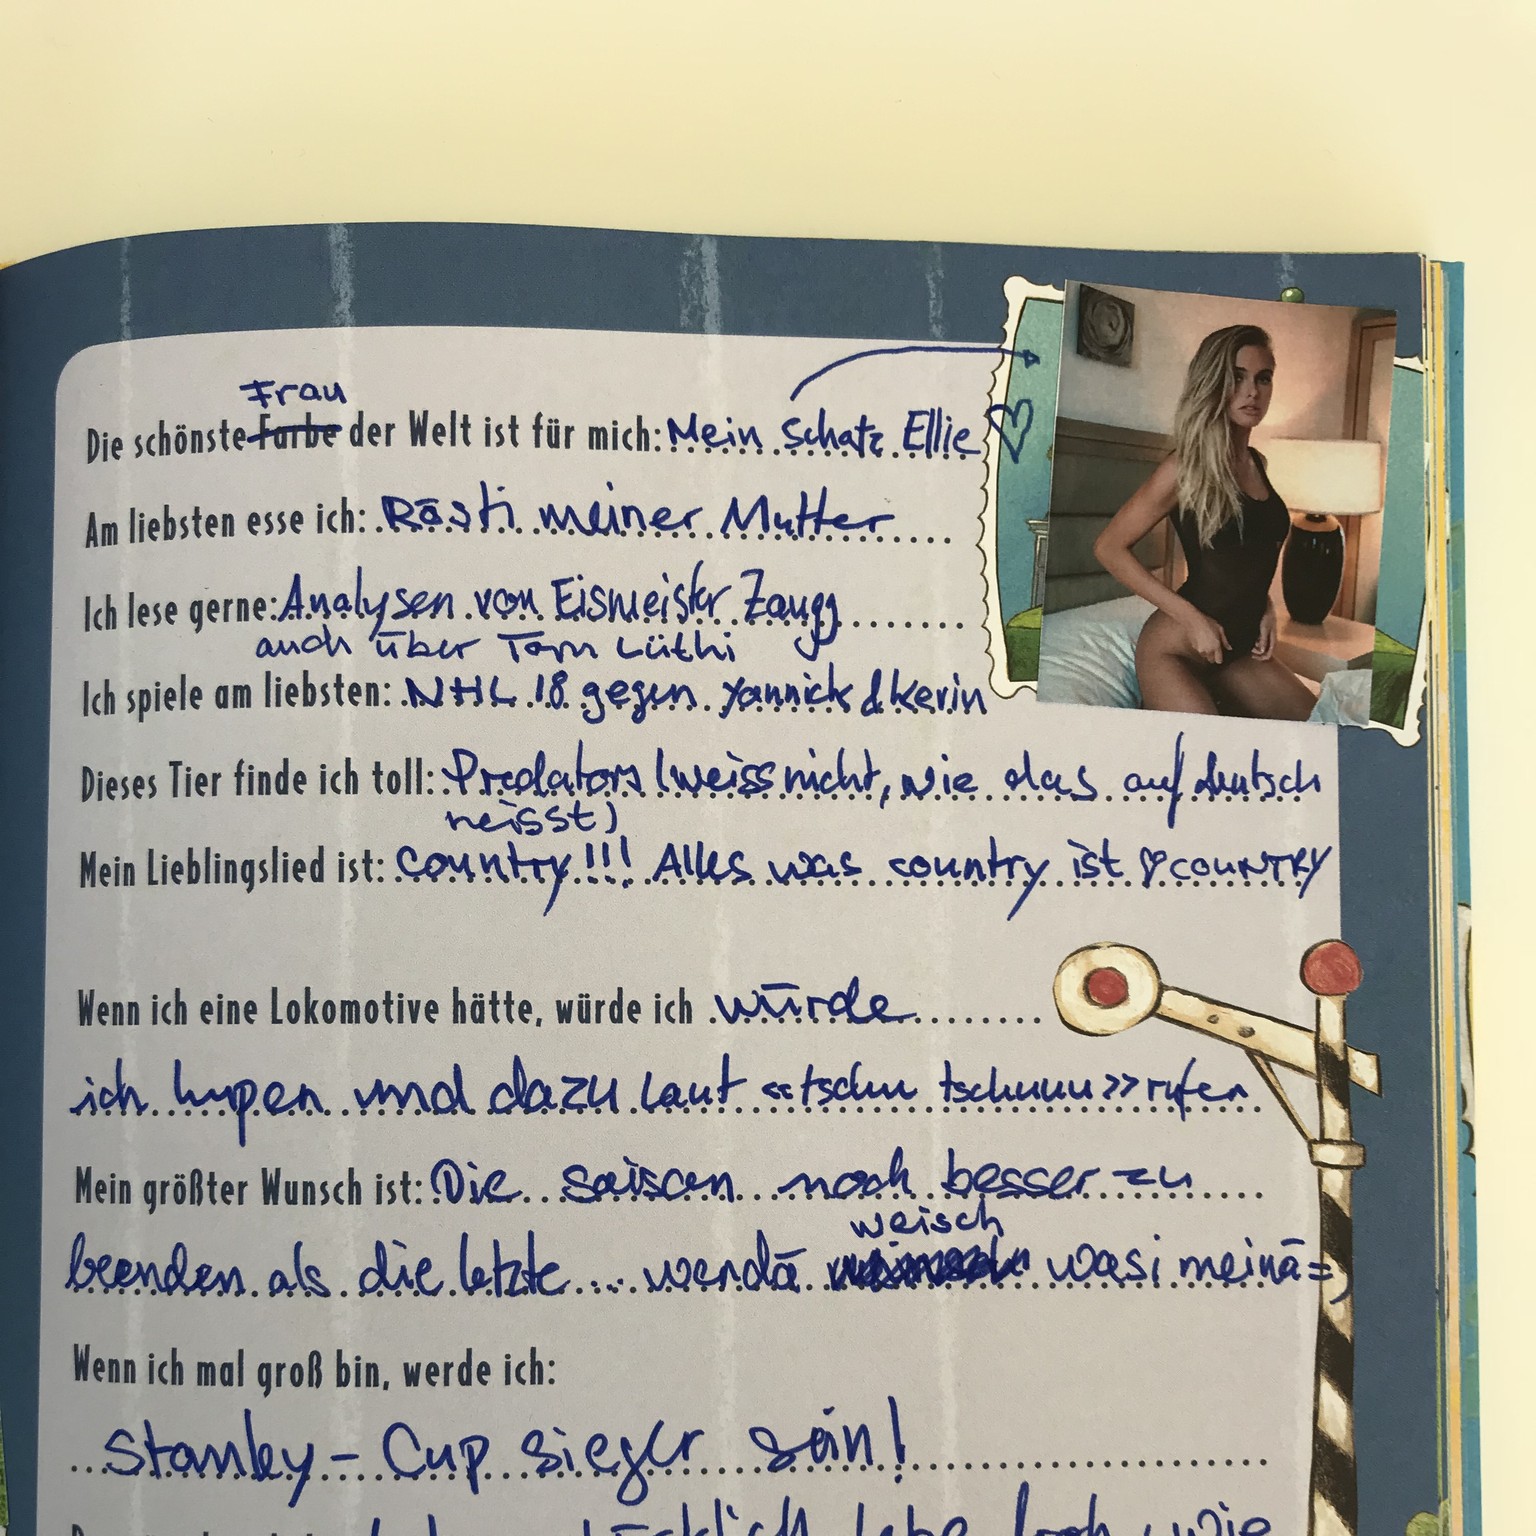 Frau
Die schönste Farbe der Welt ist für mich: Mein Schatz Ellie
Am liebsten esse ich: Rösti meiner Mutter
Ich lese gerne: Analysen von Eismeister Zaugg
auch über Tom Lüthi
Ich spiele am liebsten: NHL 18 gegen Yannick & Kevin
Dieses Tier finde ich toll: Predators (weiss nicht, wie das auf deutsch
heisst)
Mein Lieblingslied ist: Country!!! Alles was country ist ♡ COUNTRY
Wenn ich eine Lokomotive hätte, würde ich würde
ich hupen und dazu laut «tschu tschuuu» rufen
Mein größter Wunsch ist: Die saison noch besser zu
weisch
beenden als die letzte ... wenda wasi meinā =)
Wenn ich mal groß bin, werde ich:
Stanley-Cup sieger sein!